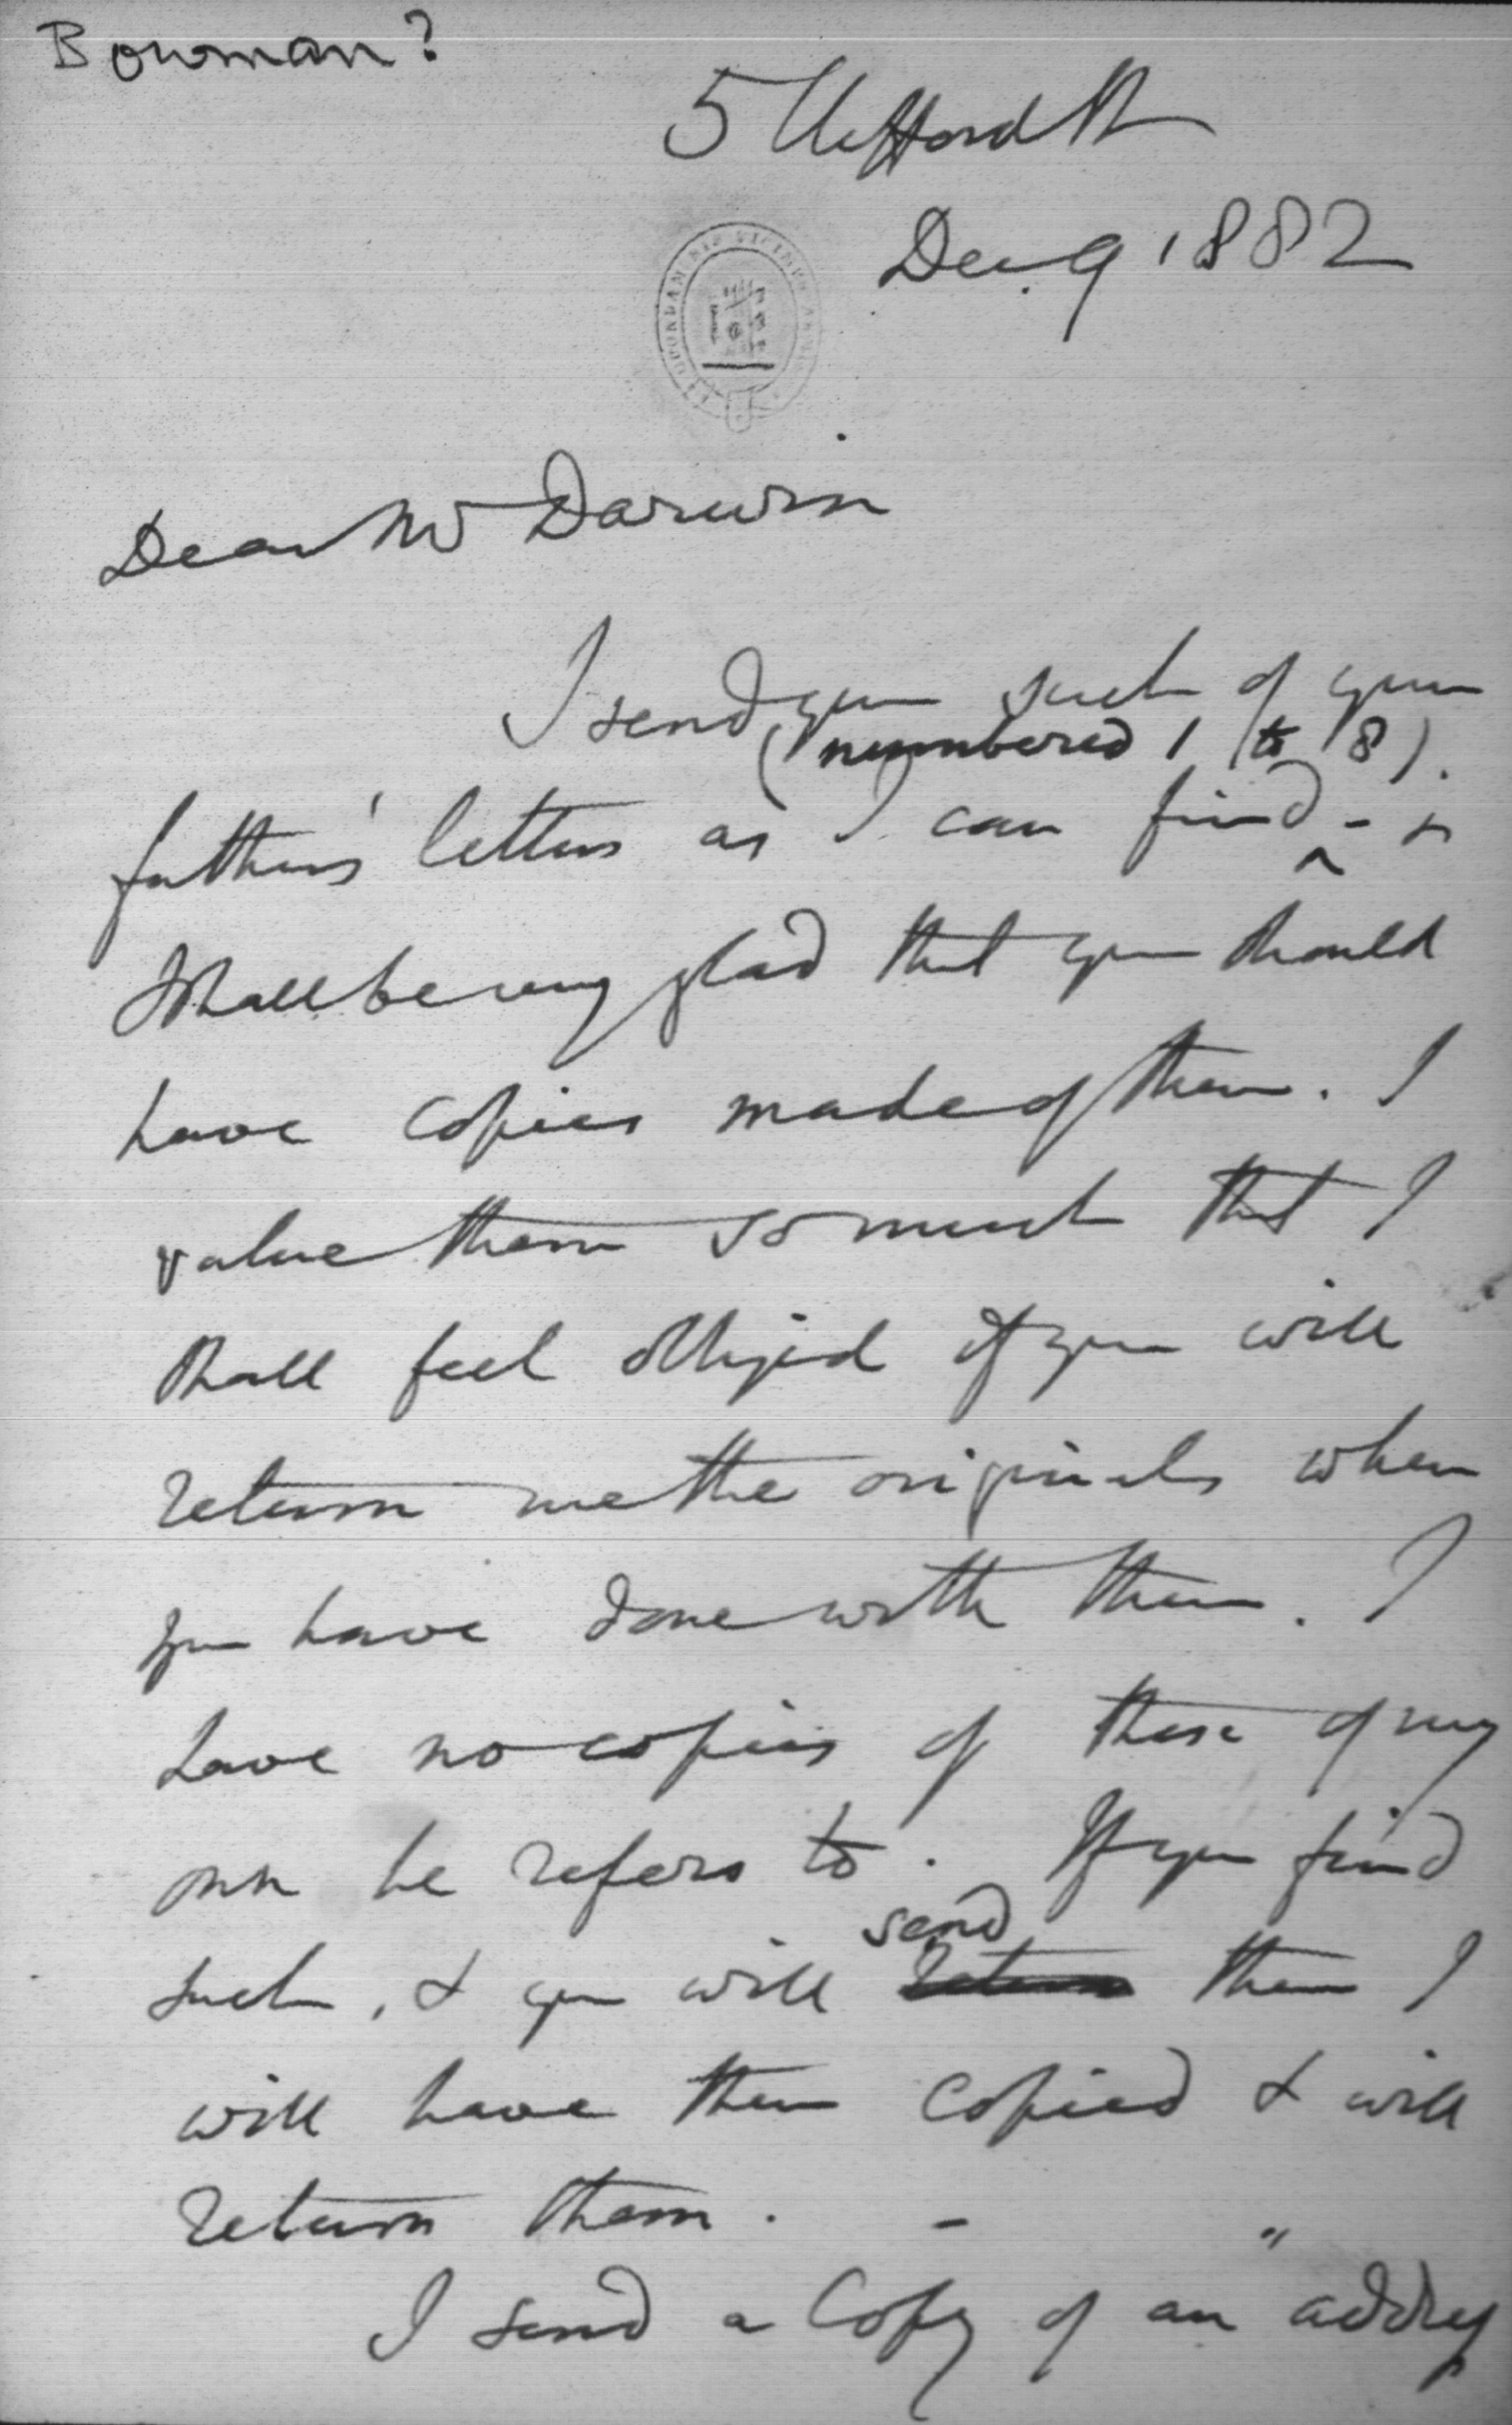 Bowman?
5 Clifford St
Dec. 9 1882
Dear Mr Darwin
I send you such of your
(numbered 1 to 8).
father's letters as I can find - &
shall be very glad that you should
have copies made of them. I
value them so much that I
shall feel obliged if you will
return me the originals when
you have done with them. I
have no copies of those of my
own he refers to. If you find
send
such, & you will return them I
will have them copied & will
return them. -
I send a Copy of an "address